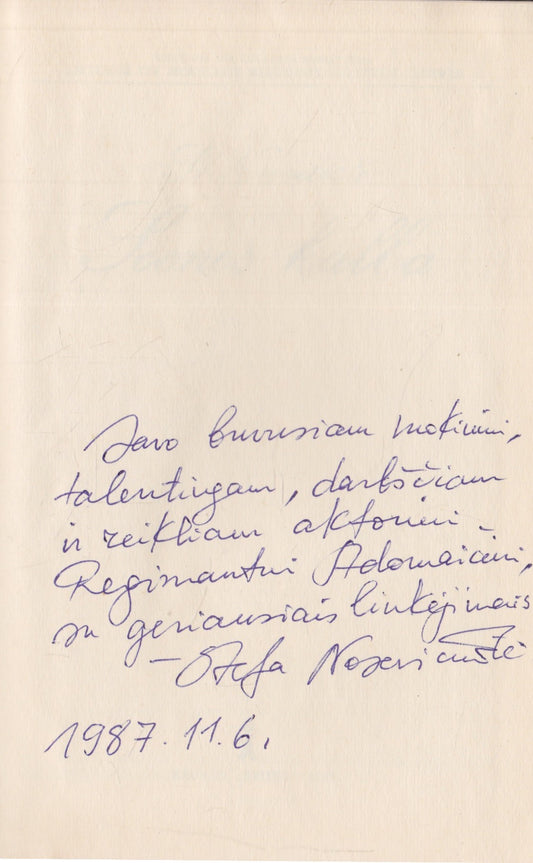 Savo buvusiam mokiniui,
talentingam, darbščiam
ir reikliam aktoriui -
Regimantui Adomaičiui,
su geriausiais linkėjimais
– Stefa Nosevičiūtė
1987.11.6.